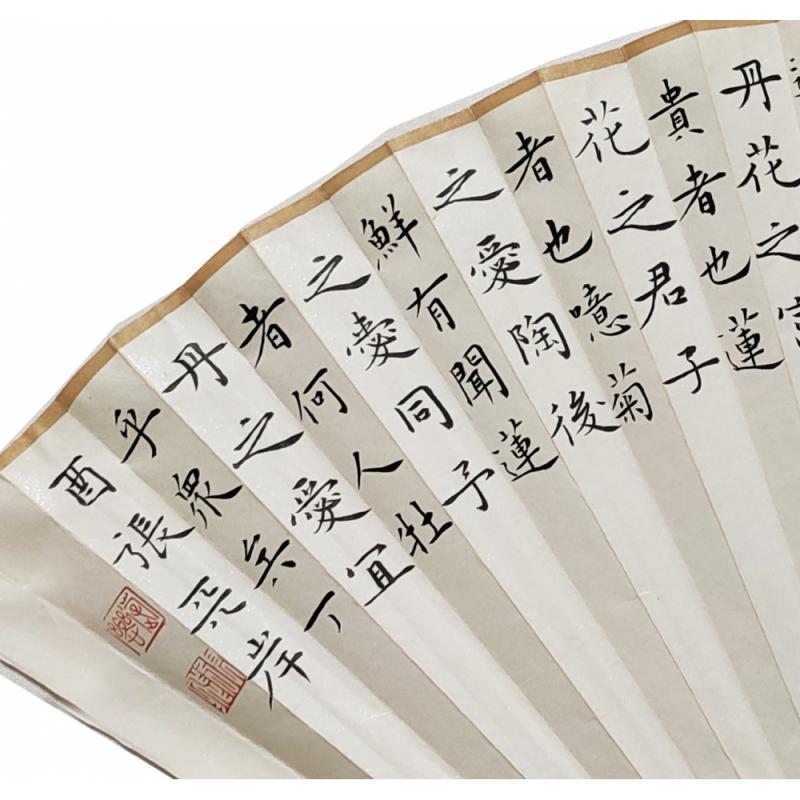 丹花之富
貴者也蓮
花之君子
者也噫菊
之愛陶後
鮮有聞蓮
之愛同予
者何人牡
丹之愛宜
乎眾矣丁
酉張岸